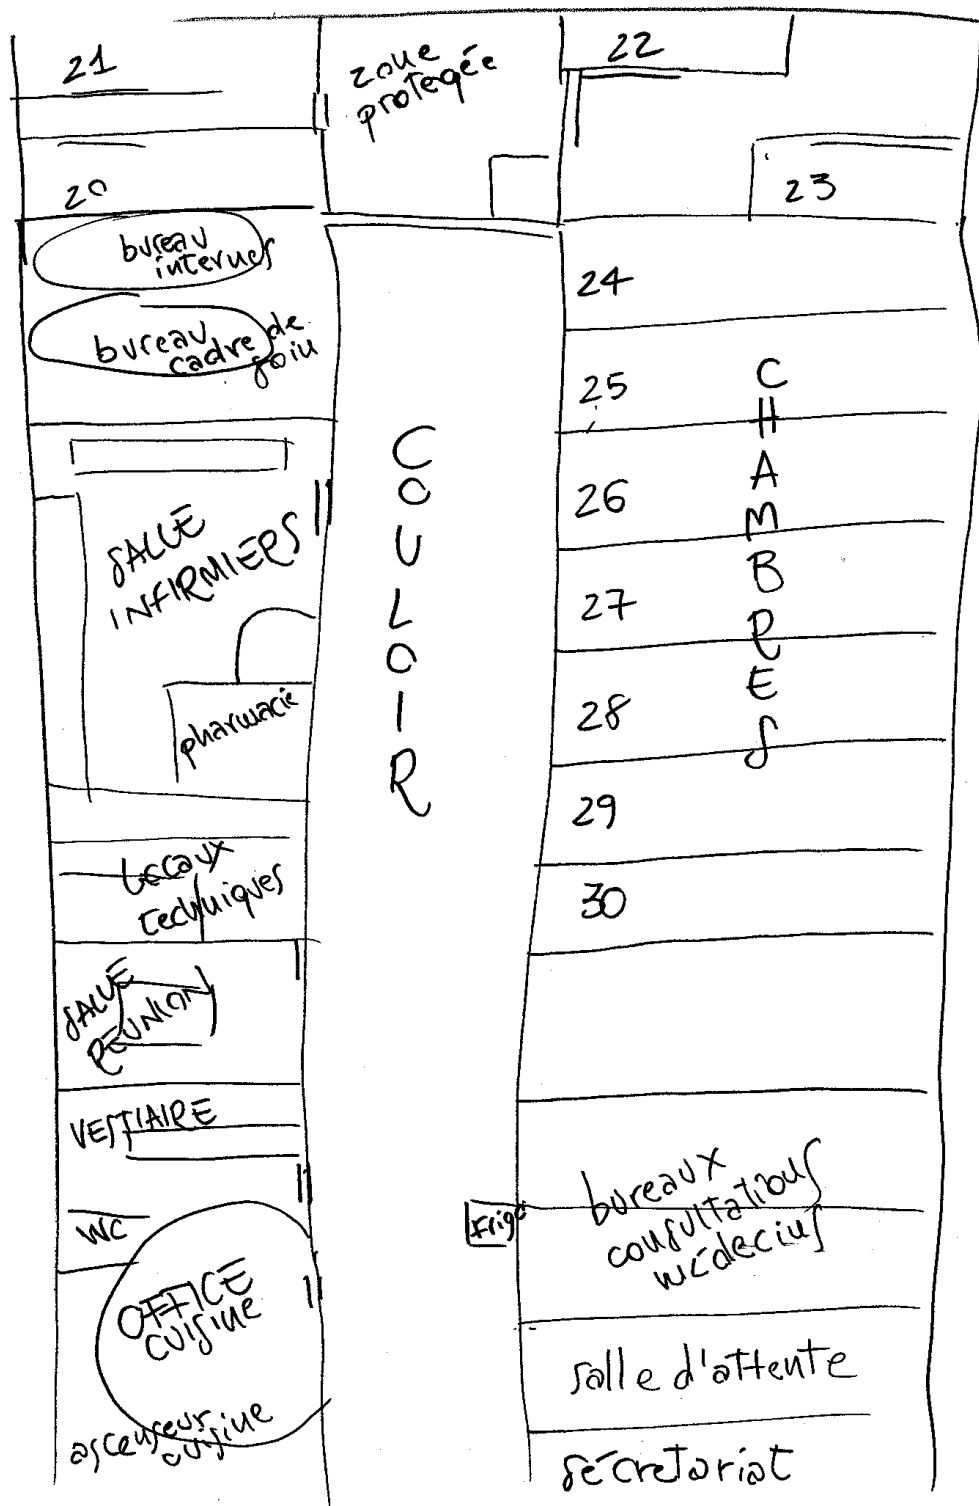 21
20
bureau
internes
bureau
cadre de
soin
SALLE
INFIRMIERS
pharmacie
Locaux
techniques
SALLE
REUNION
VESTIAIRE
WC
OFFICE
cuisine
ascenseur
cuisine
zone
protegée
COULOIR
Frigo
22
23
24
25
26
27
28
29
30
CHAMBRES
bureaux
consultations
médecins
salle d'attente
sécretariat